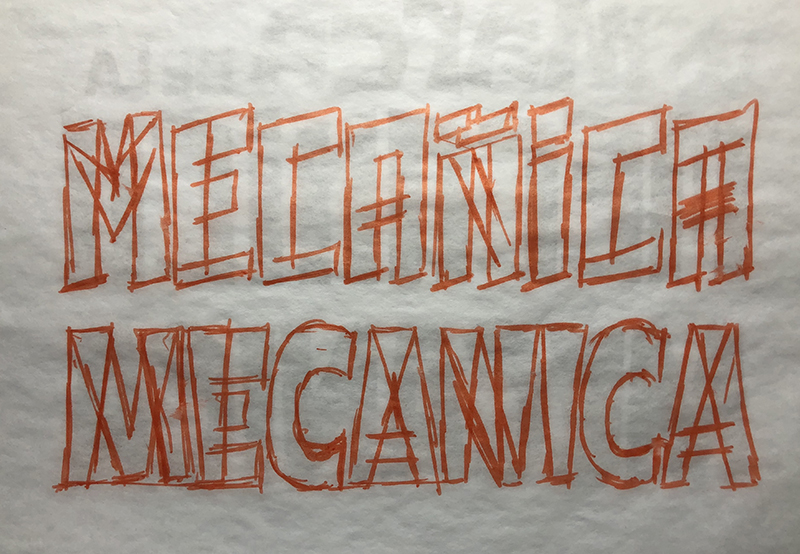 MECAÑICA
MECANICA